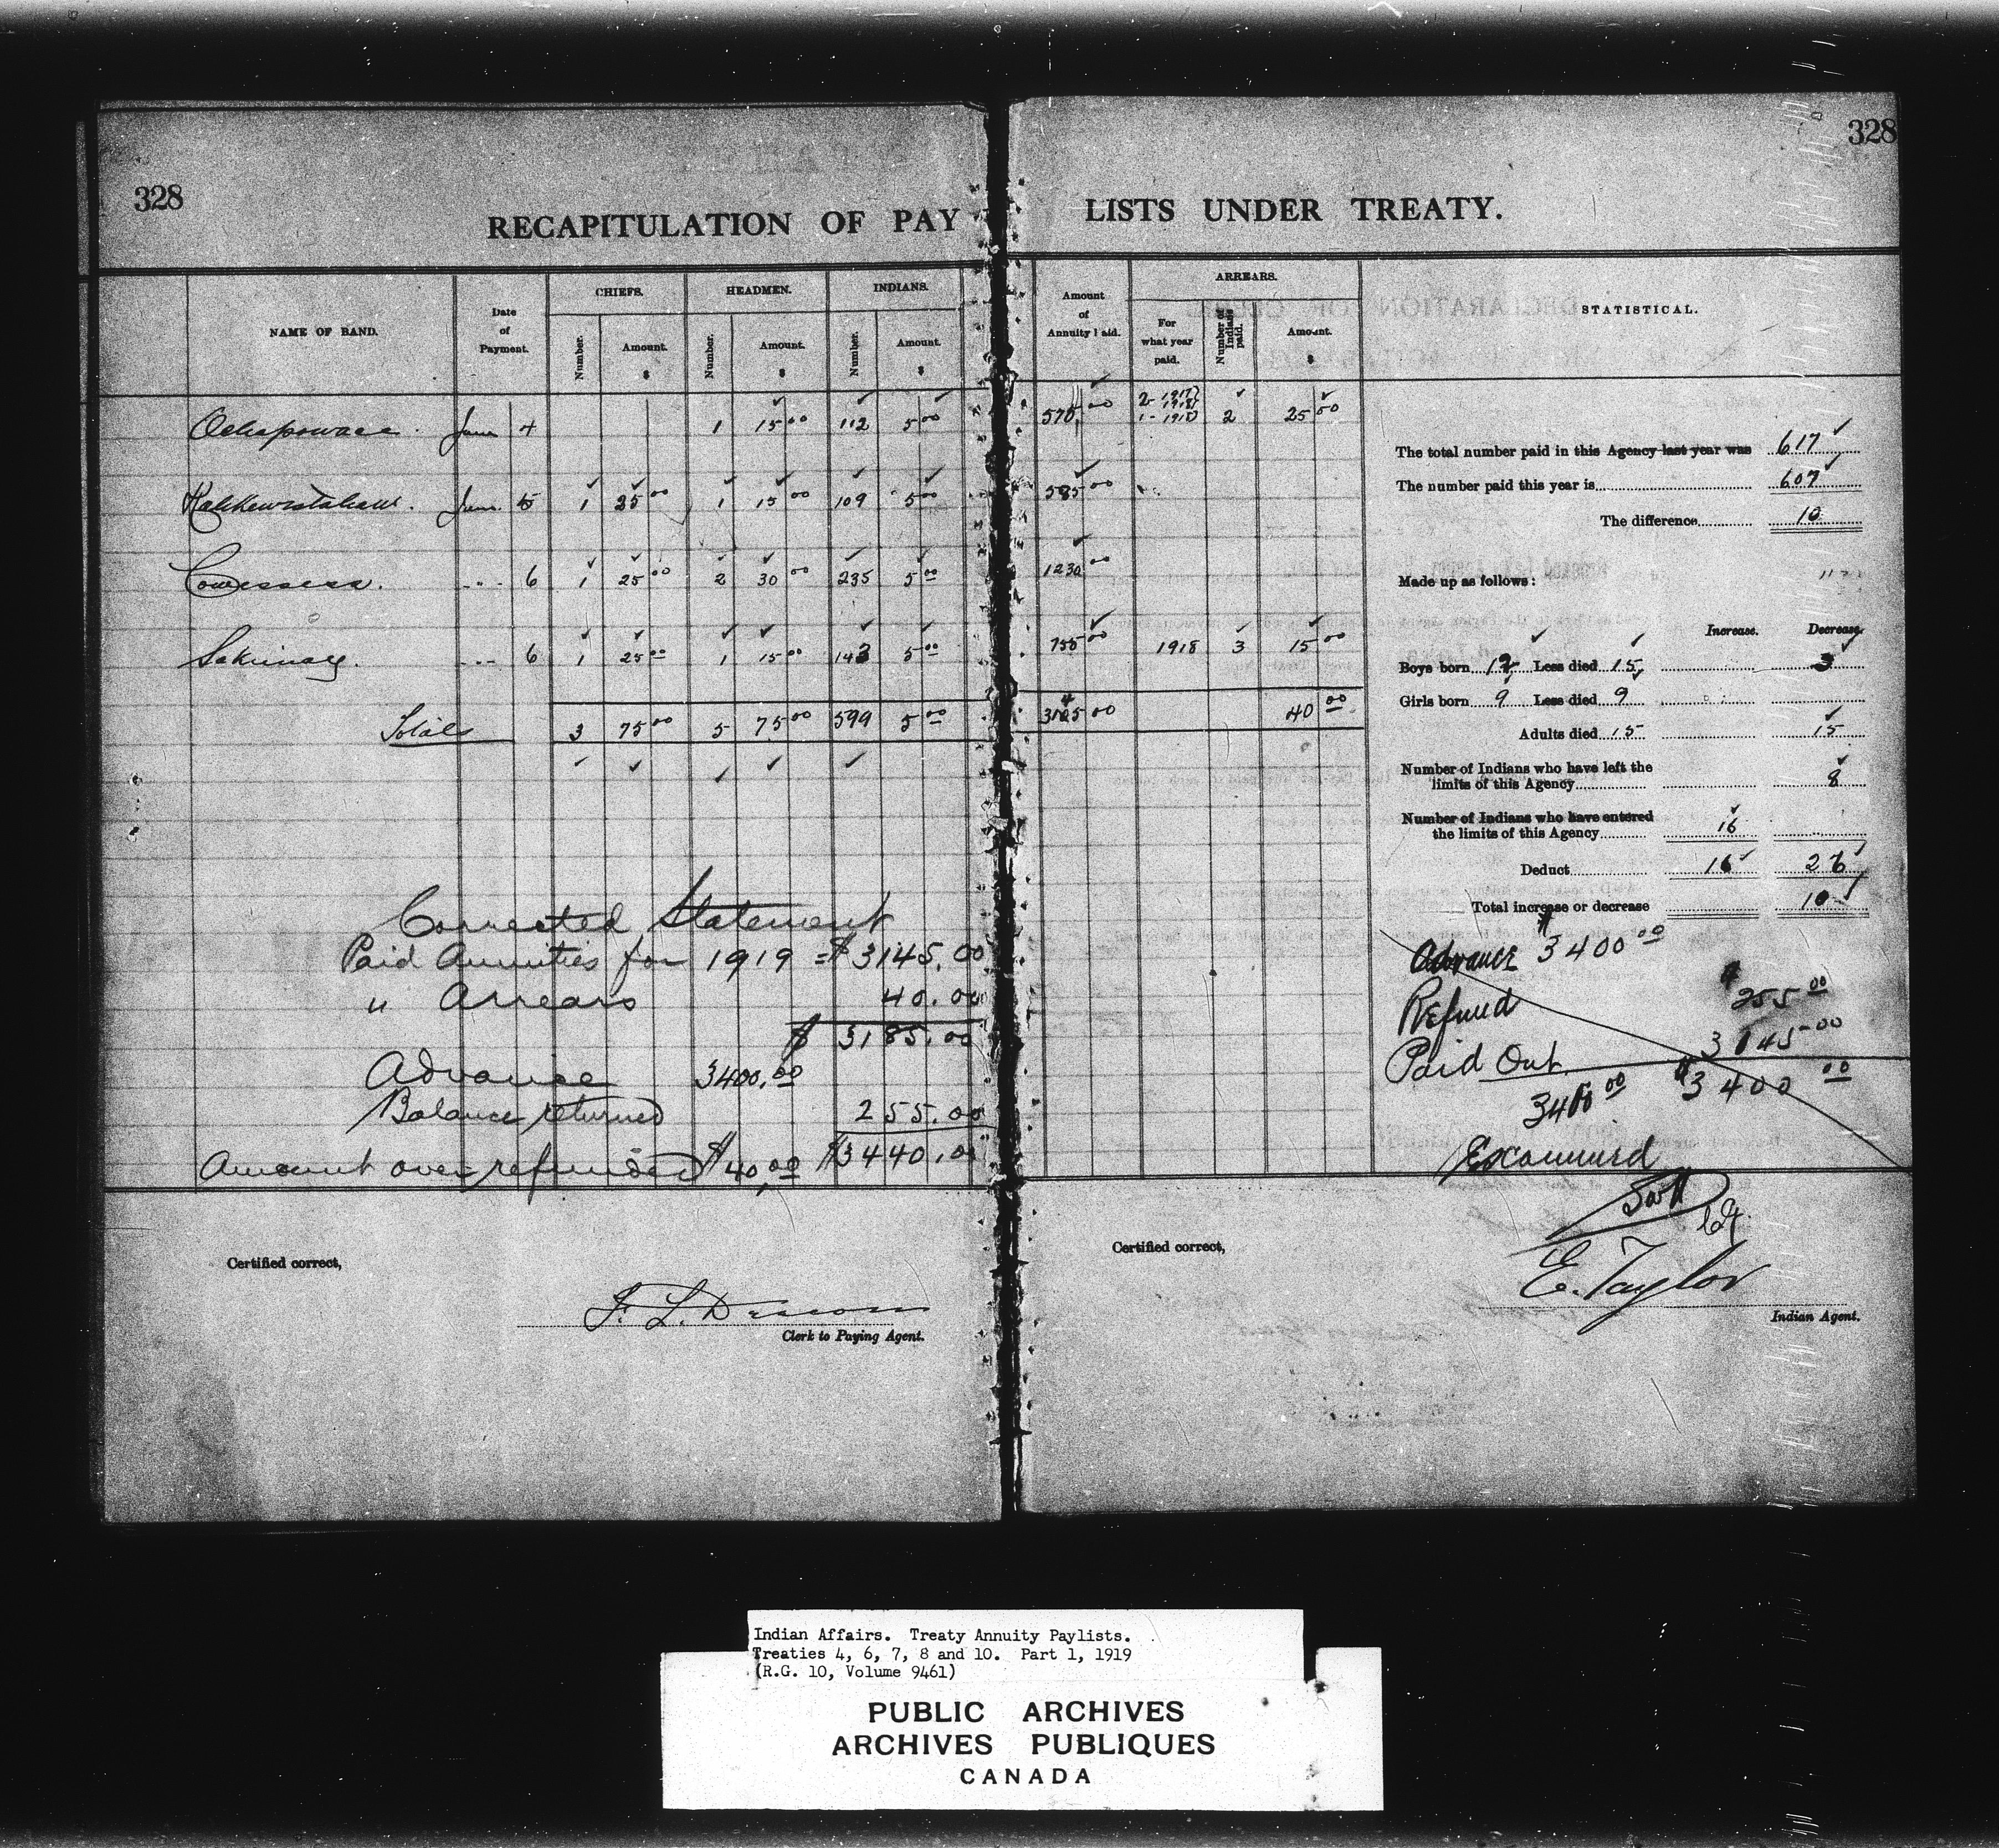 328
328
RECAPITULATION OF PAY LISTS UNDER TREATY.
NAME OF BAND.
Date of Payment.
CHIEFS.
HEADMEN.
INDIANS.
Number.
Amount. $
Number.
Amount. $
Number.
Amount. $
Amount of Annuity Paid.
ARREARS.
For what year paid.
Number of Indians paid.
Amount. $
STATISTICAL.
Ochapowace June 4 1 15 00 112 5 00 570 00 2- 1917 1918 1- 1918 2 25 00
Kahkewistahaw. June 5 1 25 00 1 15 00 109 5 00 585 00
Cowessess. " 6 1 25 00 2 30 00 235 5 00 1230 00
Sakimay. " 6 1 25 00 1 15 00 143 5 00 755 00 1918 3 15 00
Totals 3 75 00 5 75 00 599 5 00 3145 00 40 00
The total number paid in this Agency last year was 617
The number paid this year is 607
The difference 10
Made up as follows:
Increase. Decrease.
Boys born 12 Less died 15 3
Girls born 9 Less died 9
Adults died 15 15
Number of Indians who have left the
limits of this Agency 8
Number of Indians who have entered
the limits of this Agency 16
Deduct 16 26
Total increase or decrease 10
Corrected Statement
Paid Annuities for 1919 = $3145.00
" Arrears 40.00
$ 3185.00
Advance 3400.00
Balance returned 255.00
Amount over refunded $40.00 $3440.00
Advance $3400 00
Refund $255 00
Paid Out 3145 00
3400 00 $3400 00
Examined
Certified correct,
F. L. Deacon
Clerk to Paying Agent.
Certified correct,
E. Taylor
Indian Agent.
Indian Affairs. Treaty Annuity Paylists.
Treaties 4, 6, 7, 8 and 10. Part 1, 1919
(R.G. 10, Volume 9461)
PUBLIC ARCHIVES
ARCHIVES PUBLIQUES
CANADA